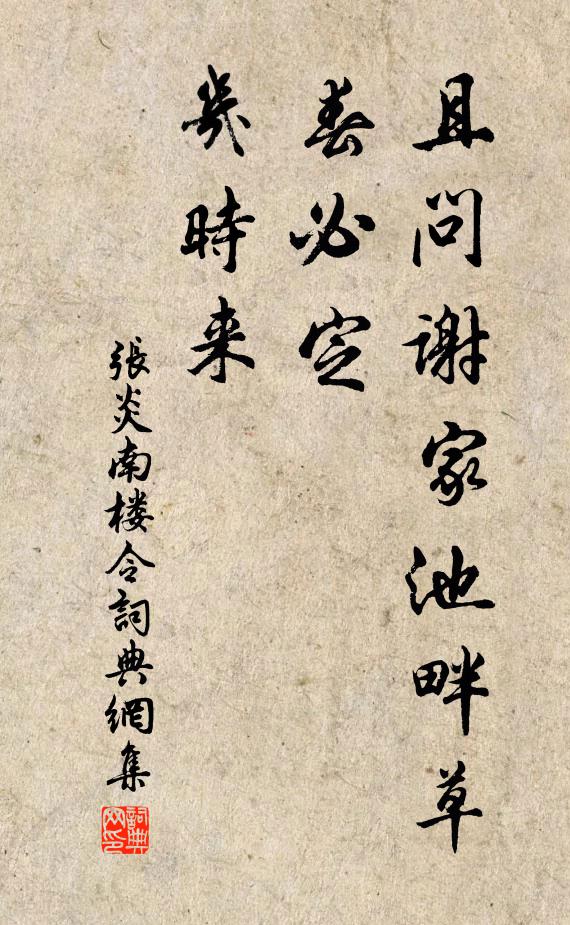 且问谢家池畔草
春必定
幾時来
張炎南楼令詞典網集
詞典网印